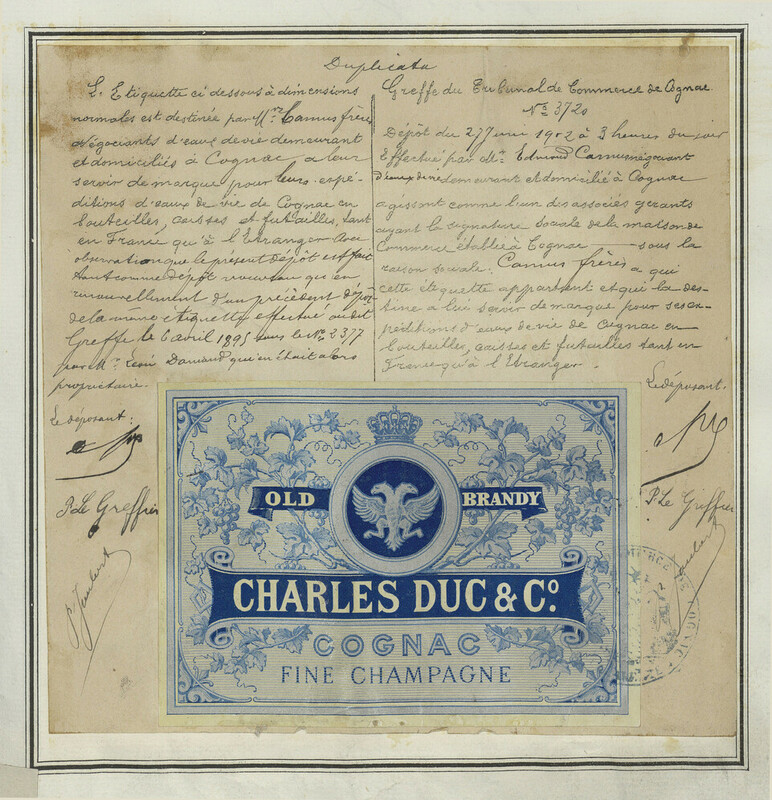 Duplicata
L'Etiquette ci dessous à dimensions
normales est destinée par MM. Camus frères
négociants d'eaux de vie demeurant
et domiciliés à Cognac a leur
servir de marque pour leurs expé-
ditions d'eaux de vie de Cognac en
bouteilles, caisses et futailles, tant
en France qu'à l'Etranger. Avec
observation que le présent dépôt est fait
tant comme dépôt nouveau qu'en
renouvellement d'un précédent dépôt
de la même etiquette effectué audit
Greffe le 6 avril 1895 sous le No 2377
par M. Léon Damaud qui en était alors
propriétaire.
Le déposant:
P. Le Greffier
P. Jaubert
Greffe du Tribunal de Commerce de Cognac
No 3720
Dépôt du 27 1902 à 3 heures du soir
Effectué par M. Edmond Camus négociant
d'eaux de vie demeurant et domicilié à Cognac
agissant comme l'un des associés gérants
ayant la signature sociale de la maison de
Commerce établie à Cognac sous la
raison sociale: Camus frères a qui
cette étiquette appartient et qui la des-
tine a lui servir de marque pour ses ex-
péditions d'eaux de vie de Cognac en
bouteilles, caisses et futailles tant en
France qu'à l'Etranger.
Le déposant.
P. Le Greffier
Jaubert
OLD BRANDY
CHARLES DUC & Co.
COGNAC
FINE CHAMPAGNE
COMMERCE DE COGNAC